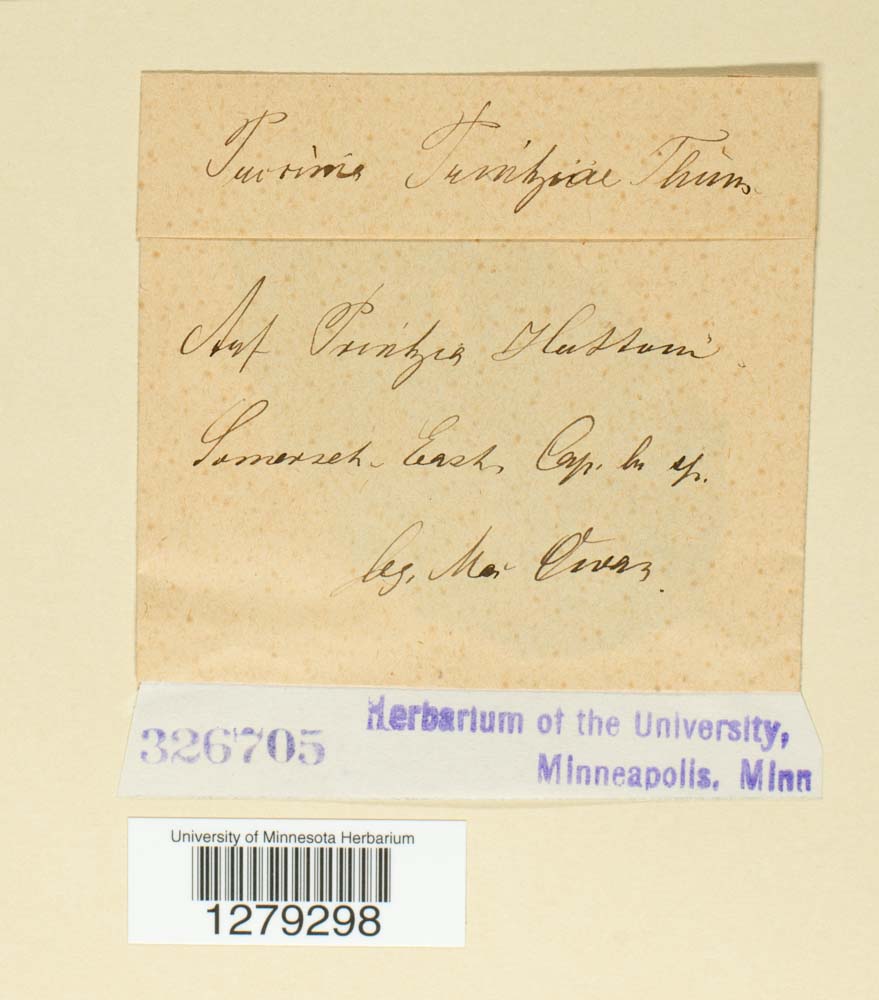 Puccinia Printziae Thüm.
Auf Printzia Huttoni
Somerset-East, Cap. b. sp.
leg. Mac Owan.
326705
Herbarium of the University,
Minneapolis, Minn
University of Minnesota Herbarium
1279298